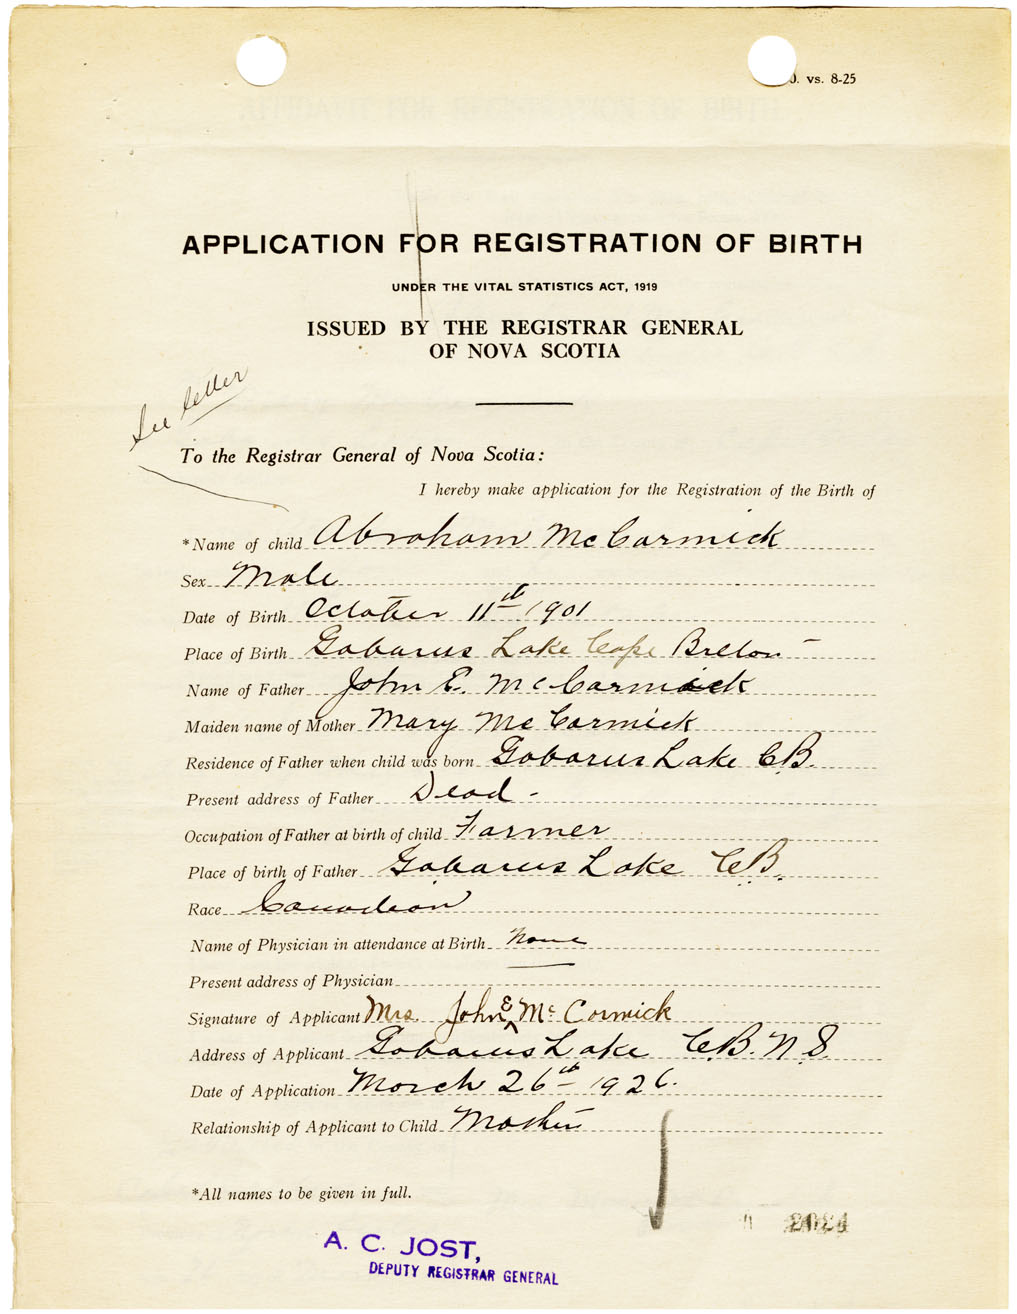 . vs. 8-25
APPLICATION FOR REGISTRATION OF BIRTH
UNDER THE VITAL STATISTICS ACT, 1919
ISSUED BY THE REGISTRAR GENERAL
OF NOVA SCOTIA
See letter
To the Registrar General of Nova Scotia:
I hereby make application for the Registration of the Birth of
*Name of child Abraham McCormick
Sex Male
Date of Birth October 11th 1901
Place of Birth Gabarus Lake Cape Breton
Name of Father John E. McCormick
Maiden name of Mother Mary McCormick
Residence of Father when child was born Gabarus Lake C.B.
Present address of Father Dead -
Occupation of Father at birth of child Farmer
Place of birth of Father Gabarus Lake C.B.
Race Canadian
Name of Physician in attendance at Birth None
Present address of Physician
Signature of Applicant Mrs. John E Mc Cormick
Address of Applicant Gabarus Lake C.B. N.S.
Date of Application March 26th 1926.
Relationship of Applicant to Child Mother
*All names to be given in full.
A. C. JOST,
DEPUTY REGISTRAR GENERAL